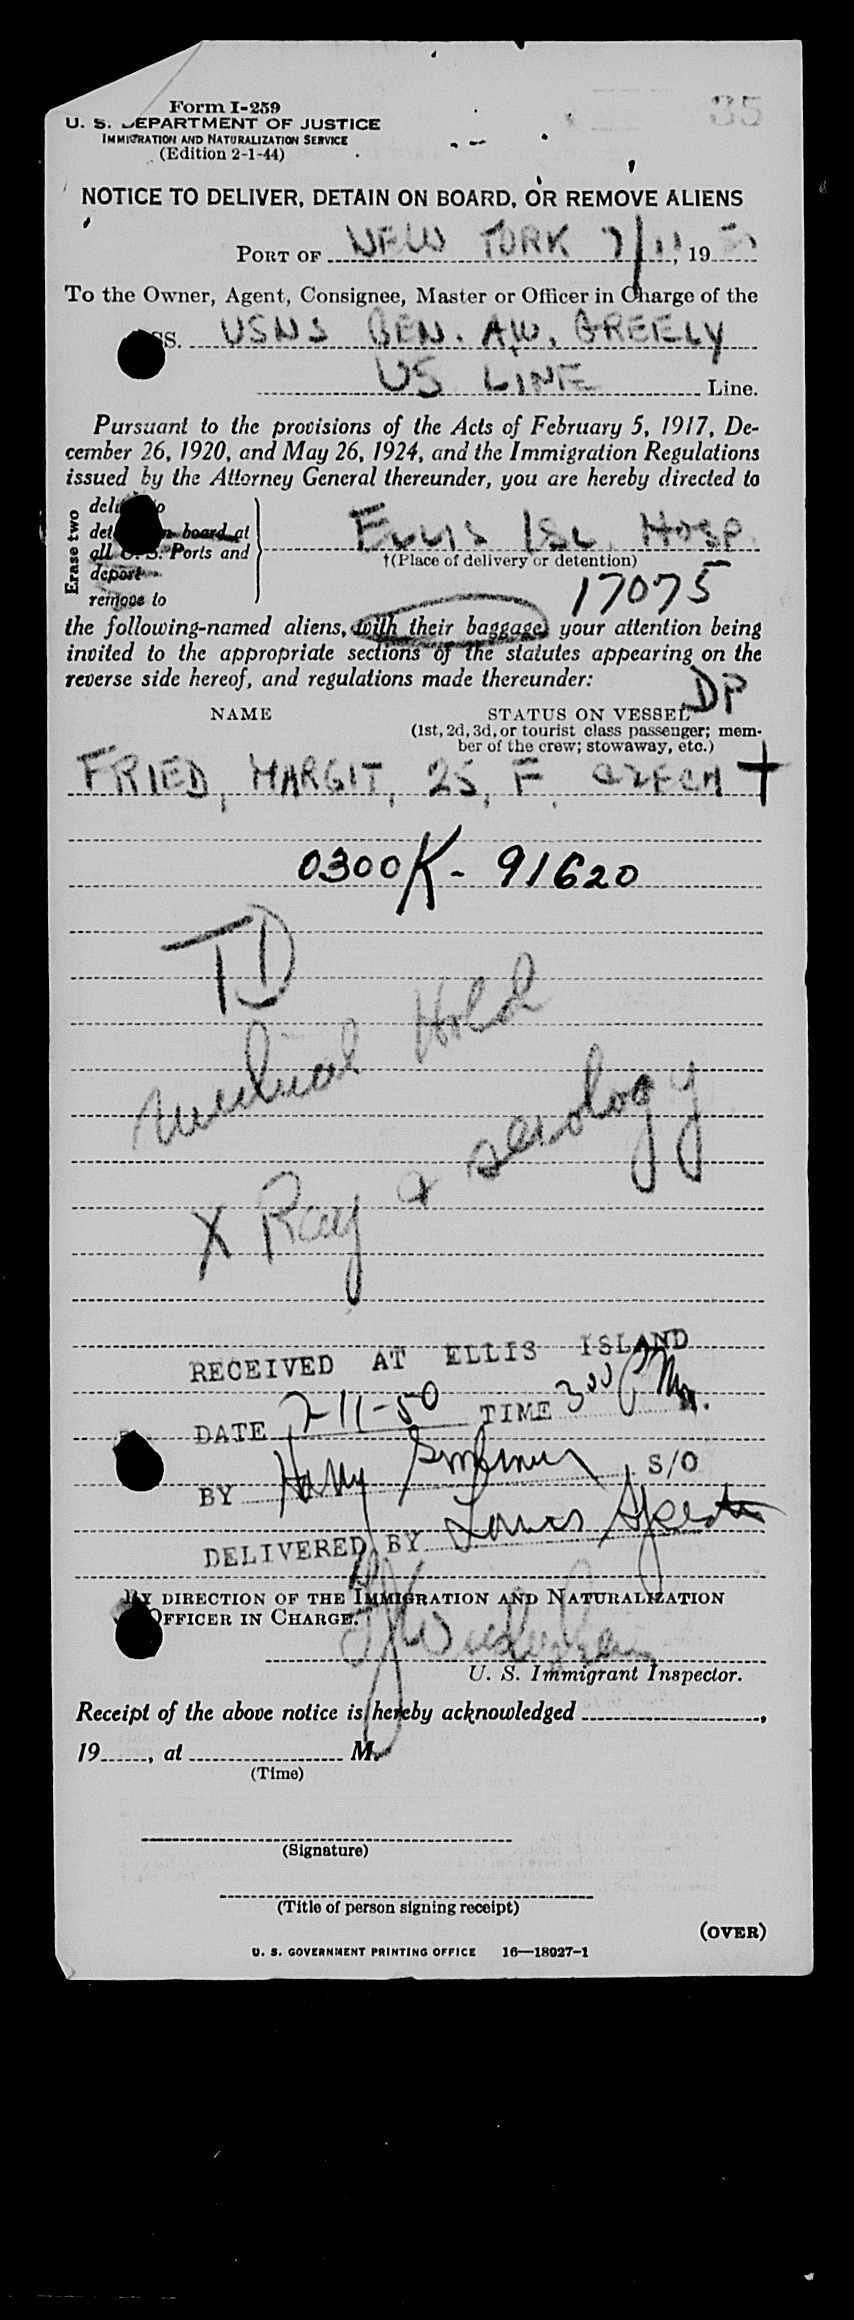 35
Form I-259
U. S. DEPARTMENT OF JUSTICE
IMMIGRATION AND NATURALIZATION SERVICE
(Edition 2-1-44)
NOTICE TO DELIVER, DETAIN ON BOARD, OR REMOVE ALIENS
PORT OF NEW YORK 7/11, 1950
To the Owner, Agent, Consignee, Master or Officer in Charge of the
SS. USNS GEN. A.W. GREELY
US LINE Line.
Pursuant to the provisions of the Acts of February 5, 1917, De-
cember 26, 1920, and May 26, 1924, and the Immigration Regulations
issued by the Attorney General thereunder, you are hereby directed to
Erase two
deliver to
detain on board at
all U. S. Ports and
deport
remove to
ELLIS ISL. HOSP.
†(Place of delivery or detention)
17075
the following-named aliens, with their baggage, your attention being
invited to the appropriate sections of the statutes appearing on the
reverse side hereof, and regulations made thereunder:
DP
NAME STATUS ON VESSEL
(1st, 2d, 3d, or tourist class passenger; mem-
ber of the crew; stowaway, etc.)
FRIED, MARGIT, 25, F, CZECH
0300K-91620
TD
Medical Hold
X Ray & serology
RECEIVED AT ELLIS ISLAND
DATE 7-11-50 TIME 3 00 PM.
BY Harry S/O
DELIVERED BY
BY DIRECTION OF THE IMMIGRATION AND NATURALIZATION
OFFICER IN CHARGE.
U. S. Immigrant Inspector.
Receipt of the above notice is hereby acknowledged ,
19 , at M.
(Time)
(Signature)
(Title of person signing receipt)
(OVER)
U. S. GOVERNMENT PRINTING OFFICE 16—18027-1